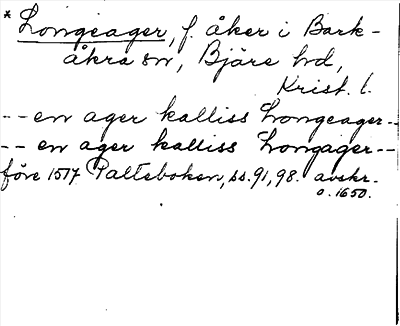 * Longeager, f. åker i Bark-
åkra sn, Bjäre hd,
Krist. l.
-- en ager kalliss Longeager --
-- en ager kalliss Longager --
före 1517 Palteboken, ss. 91, 98. avskr.
o. 1650.